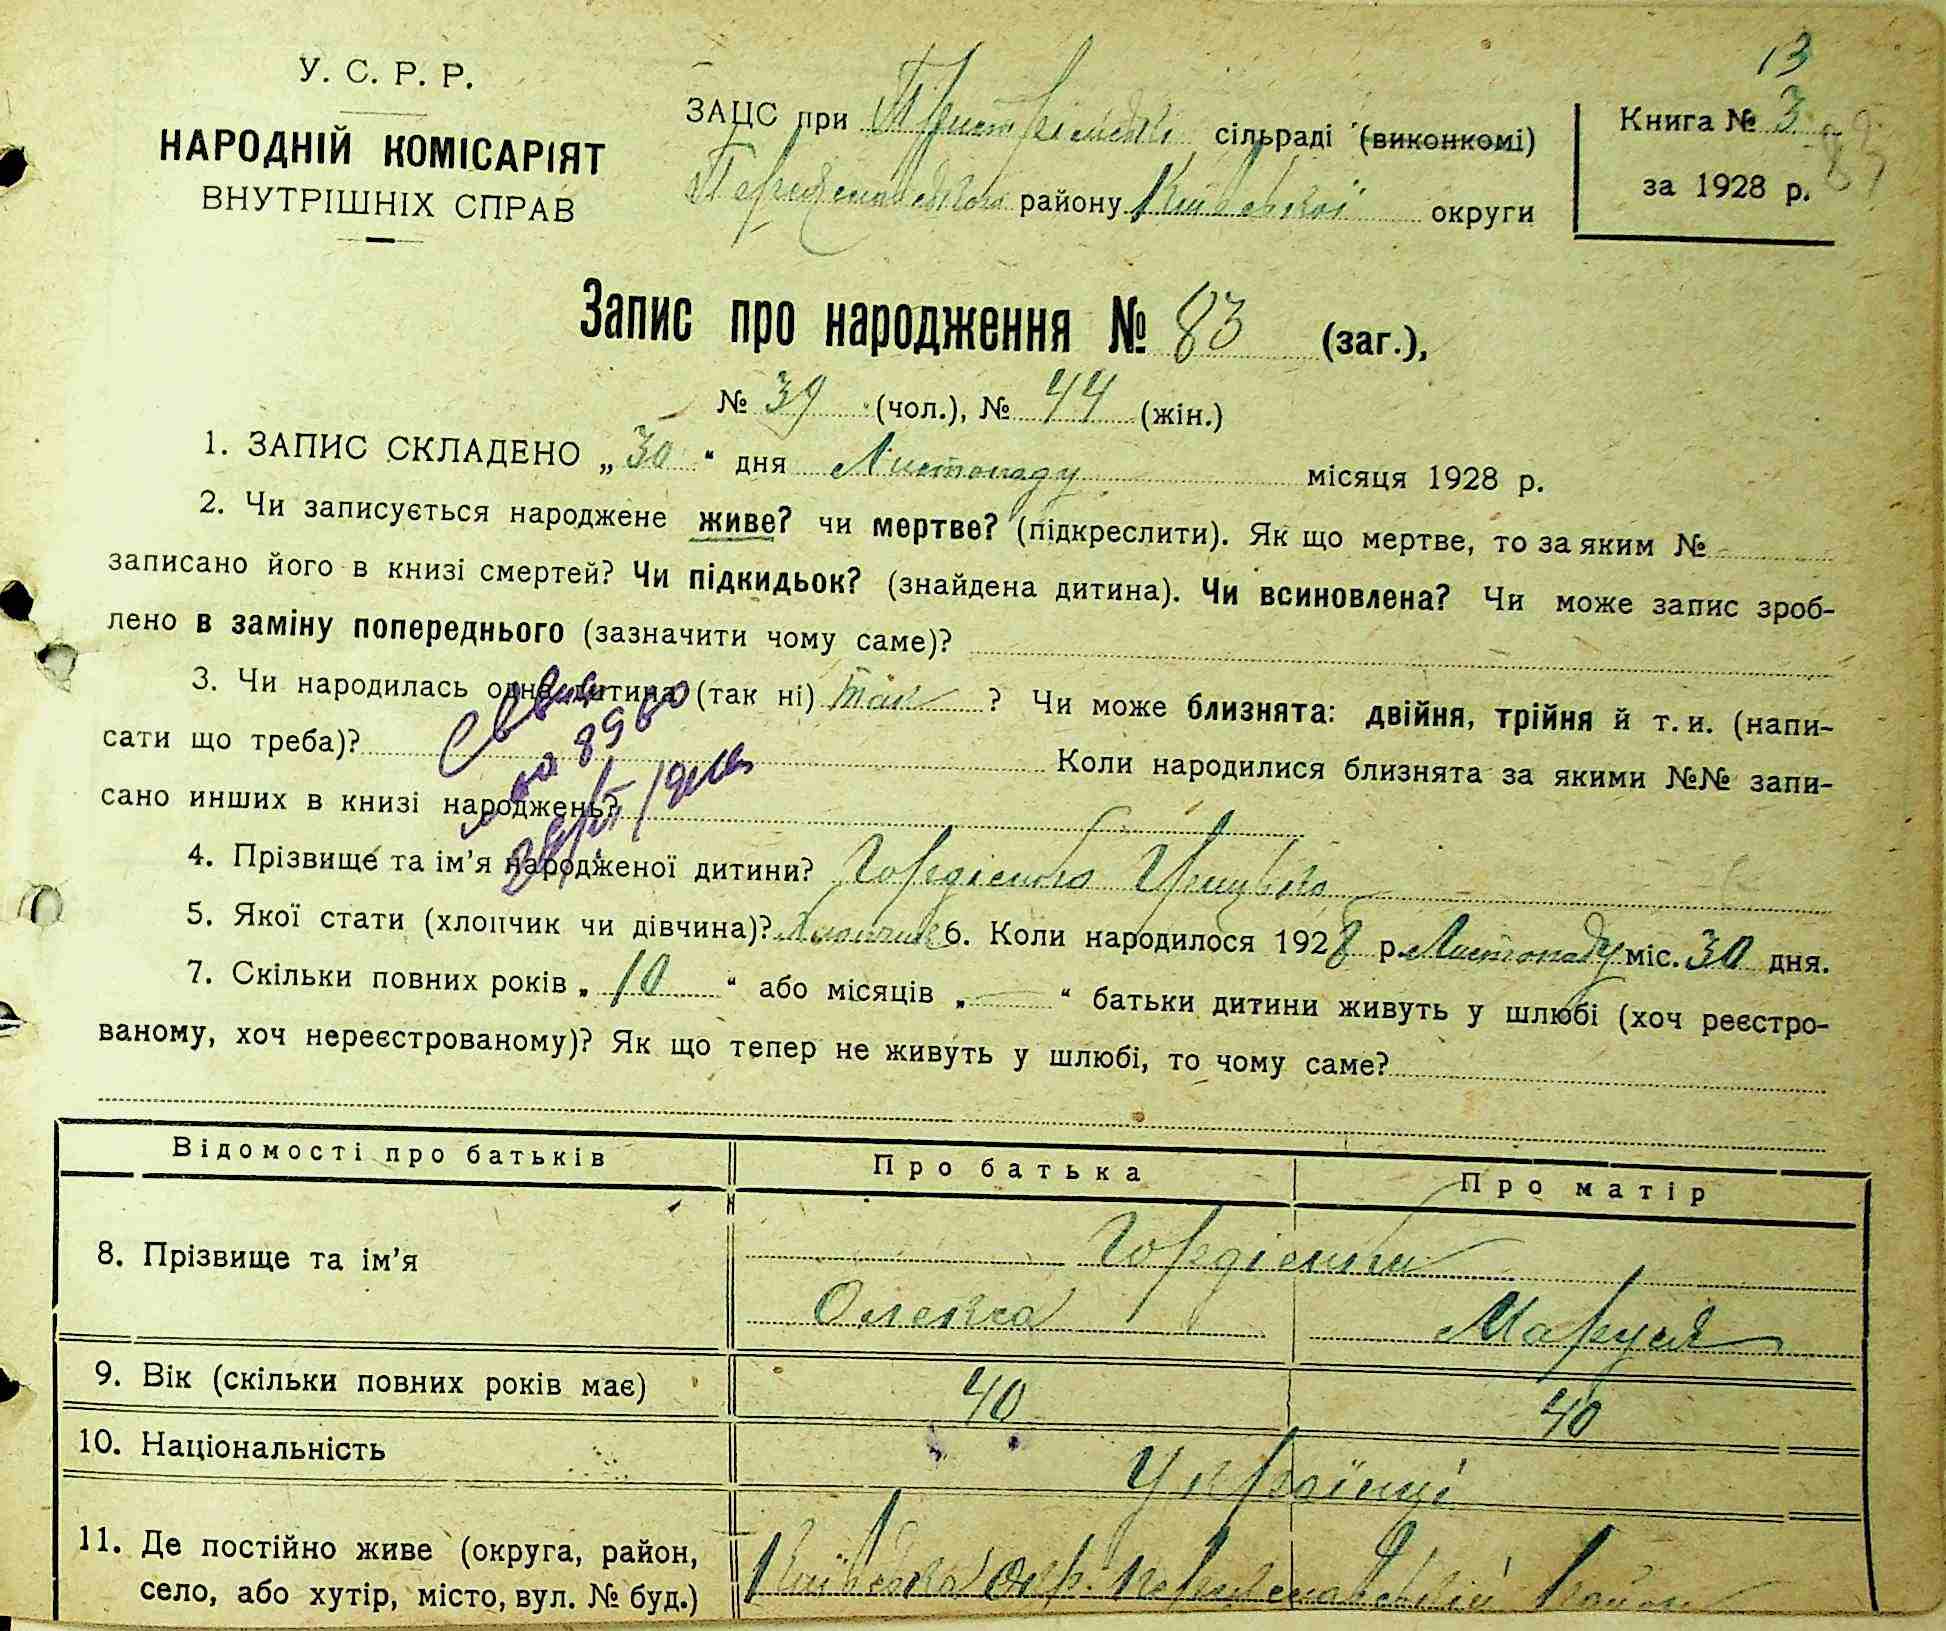 13
У. С. Р. Р.
НАРОДНІЙ КОМІСАРІЯТ
ВНУТРІШНІХ СПРАВ
ЗАЦС при Пристромській сільраді (виконкомі)
Переяславського району Київської округи
Книга № 3
за 1928 р.
83
Запис про народження № 83 (заг.),
№ 39 (чол.), № 44 (жін.)
1. ЗАПИС СКЛАДЕНО „ 30 “ дня Листопаду місяця 1928 р.
2. Чи записується народжене живе? чи мертве? (підкреслити). Як що мертве, то за яким №
записано його в книзі смертей? Чи підкидьок? (знайдена дитина). Чи всиновлена? Чи може запис зроб-
лено в заміну попереднього (зазначити чому саме)?
3. Чи народилась одна дитина (так ні) так ? Чи може близнята: двійня, трійня й т. и. (напи-
сати що треба)? Коли народилися близнята за якими №№ запи-
сано инших в книзі народжень?
4. Прізвище та ім’я народженої дитини? Гордієнко Грицько
5. Якої стати (хлопчик чи дівчина)? Хлопчик 6. Коли народилося 1928 р. Листопаду міс. 30 дня.
7. Скільки повних років „ 10 “ або місяців „ — “ батьки дитини живуть у шлюбі (хоч реєстро-
ваному, хоч нереєстрованому)? Як що тепер не живуть у шлюбі, то чому саме?
Відомості про батьків Про батька Про матір
8. Прізвище та ім’я Гордієнки
Олекса Маруся
9. Вік (скільки повних років має) 40 40
10. Національність Українці
11. Де постійно живе (округа, район,
село, або хутір, місто, вул. № буд.)
Київська окр. Переяславський район